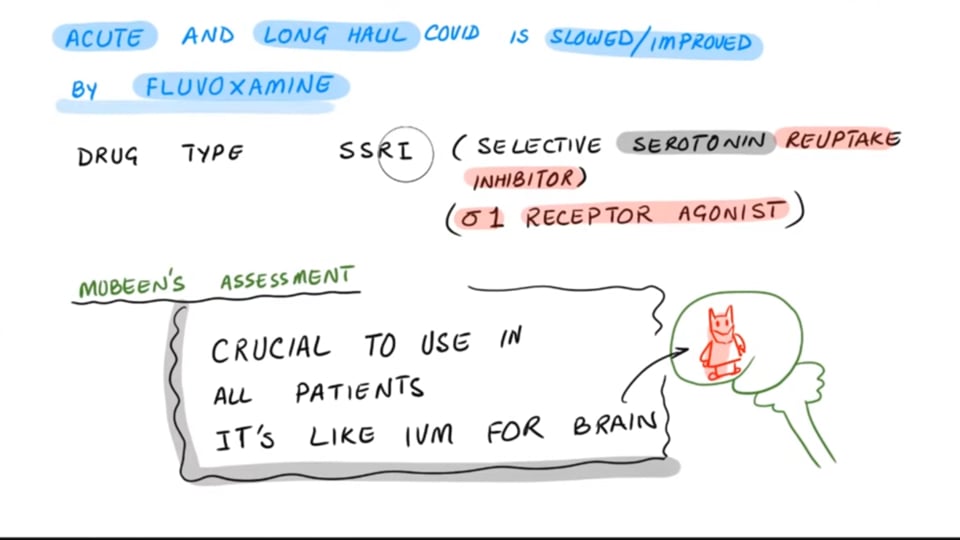 ACUTE AND LONG HAUL COVID IS SLOWED/IMPROVED
BY FLUVOXAMINE
DRUG TYPE SSRI (SELECTIVE SEROTONIN REUPTAKE
INHIBITOR)
(σ1 RECEPTOR AGONIST)
MOBEEN'S ASSESSMENT
CRUCIAL TO USE IN
ALL PATIENTS
IT'S LIKE IVM FOR BRAIN